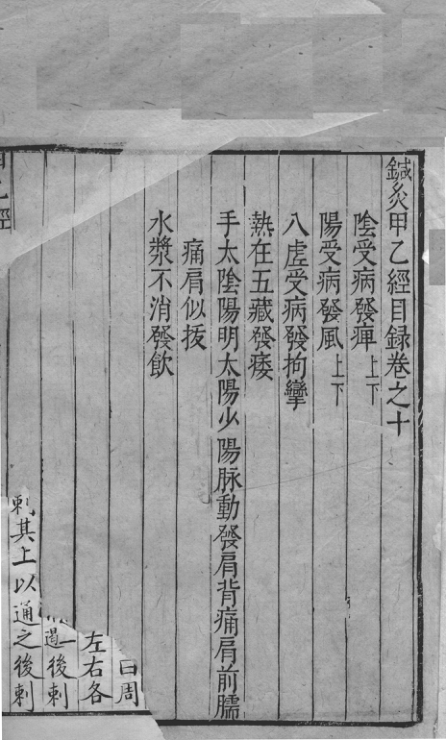 鍼灸甲乙經目録卷之十
陰受病發痺上下
陽受病發風上下
八虛受病發拘攣
熱在五藏發痿
手太陰陽明太陽少陽脉動發肩背痛肩前臑
痛肩似拔
水漿不消發飲
曰周
左右各
過一後刺
刺其上以通之後刺
甲乙經